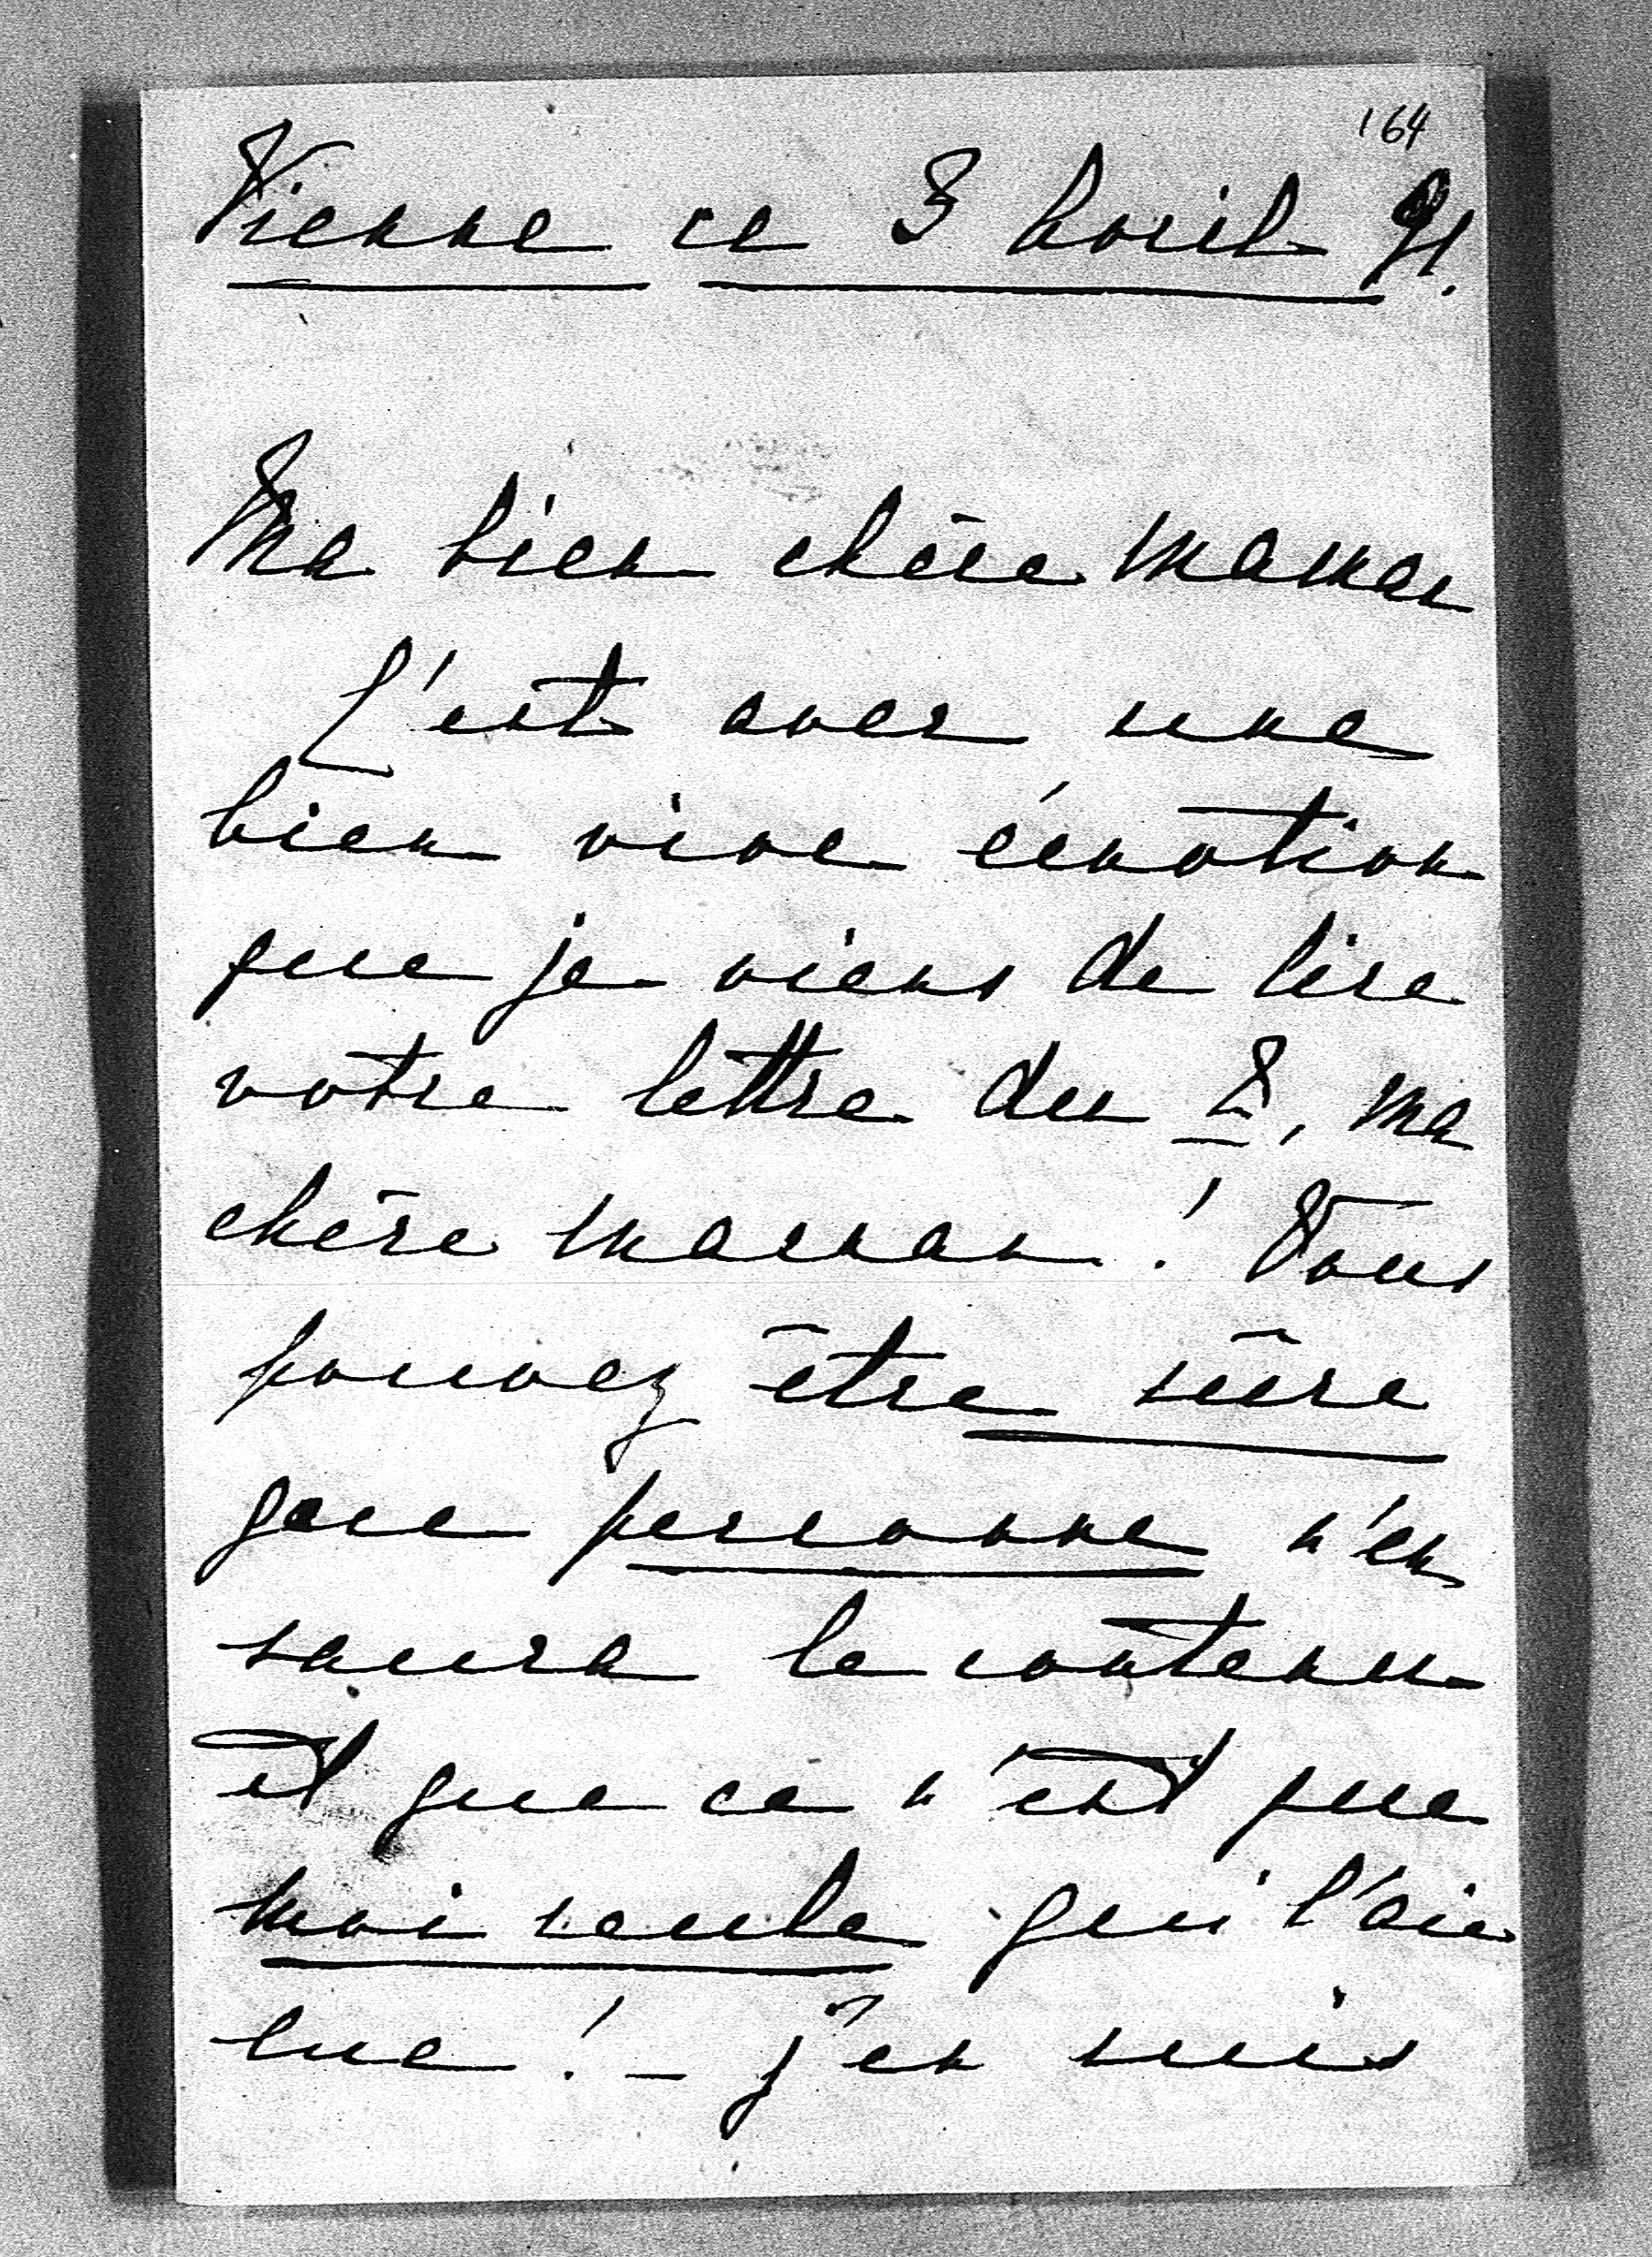 164
Vienne ce 3 Avril 91.
Ma bien chère maman
C'est avec une
bien vive émotion
que je viens de lire
votre lettre du 2, ma
chère maman! Vous
pouvez être sûre
que personne n'en
saura le contenu
et que ce n'est que
moi seule qui l'aie
lue! – J'en suis